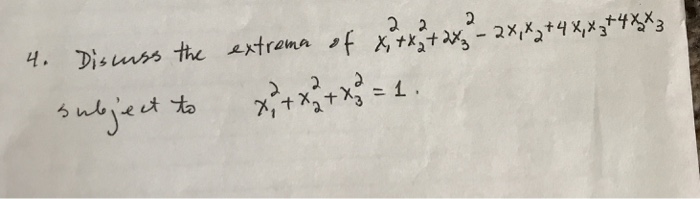 4. Discuss the extrema of x₁² + x₂² + 2x₃² - 2x₁x₂ + 4x₁x₃ + 4x₂x₃
subject to x₁² + x₂² + x₃² = 1.